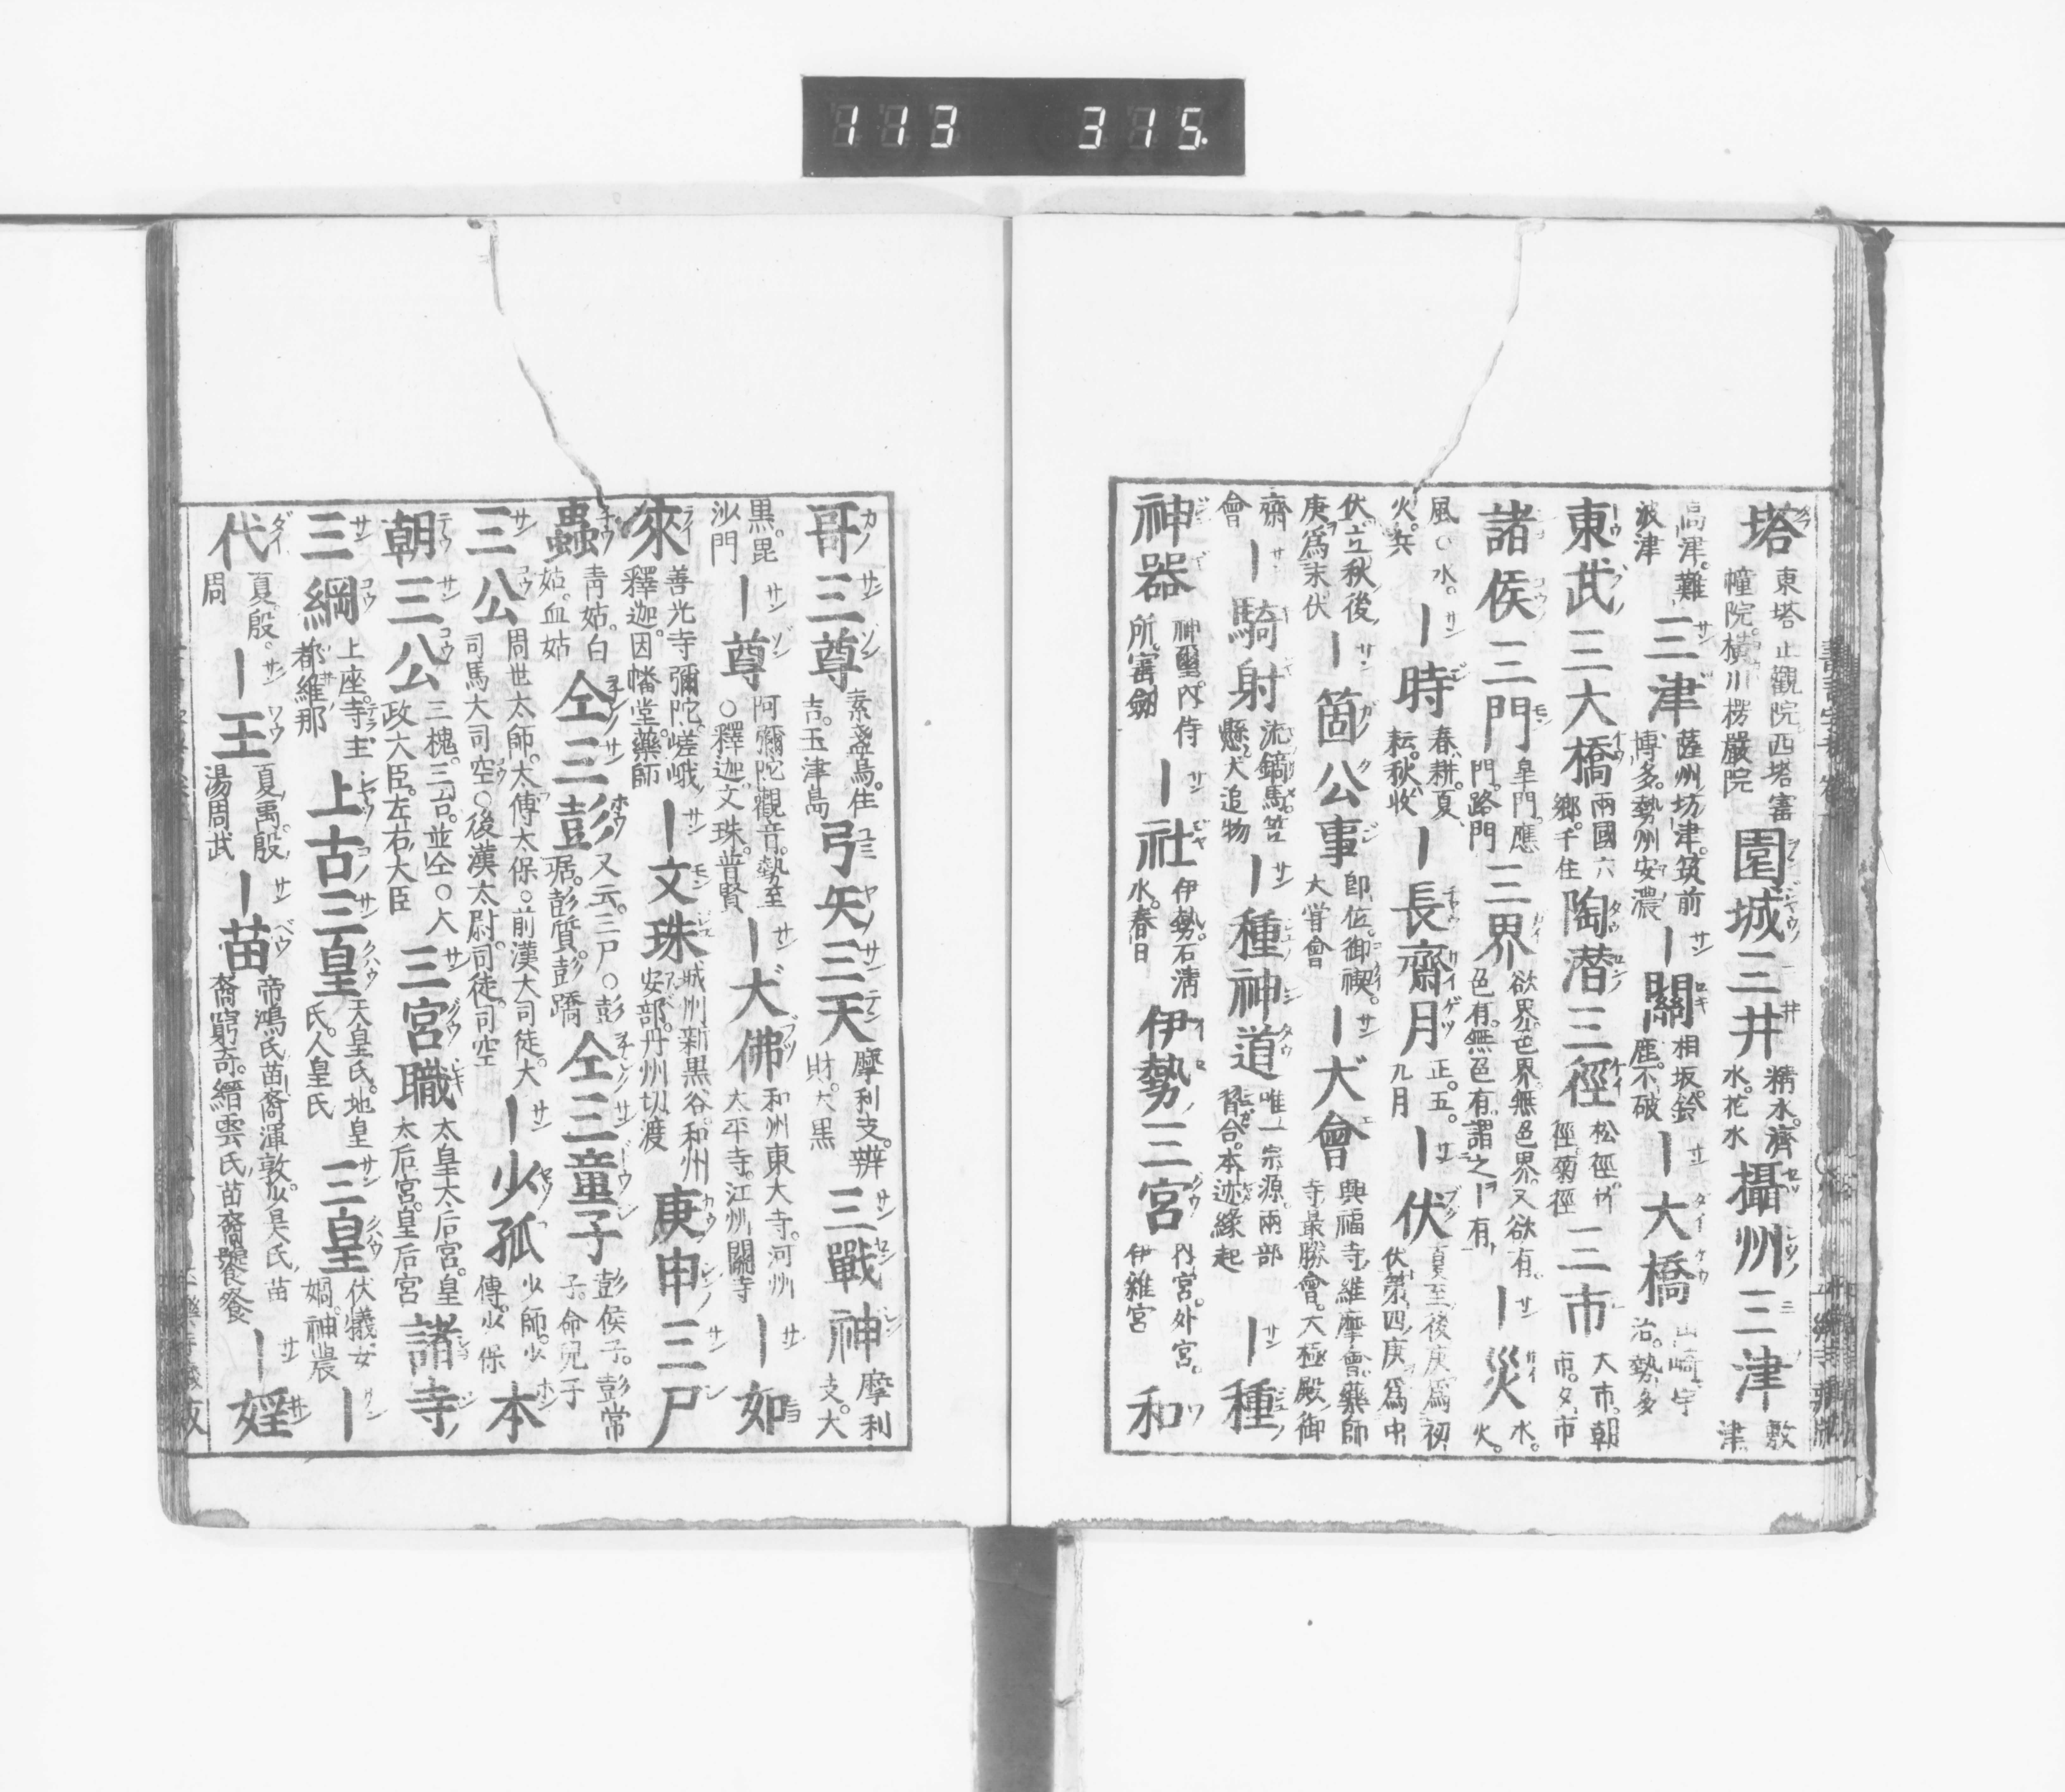 113 315.
塔 東塔 止觀院 西塔 審幢院 橫川 楞嚴院 園城三井 精水。濟水。花水 攝州三津 敷津
高津。難波津 三津 薩州坊津。筑前博多。勢州安濃 ー關 相坂。鈴鹿。不破 ー大橋 山崎 宇治。勢多
東武三大橋 兩國 六鄉。千住 陶潜三徑 松徑。竹徑。菊徑 三市 大市。朝市。夕市
諸侯三門 皐門。應門。路門 三界 欲界。色界。無色界。又欲有。色有。無色有。謂之ー有 ー災 水。火。
風〇水。火。兵 ー時 春耕。夏耘。秋收 ー長齋月 正。五。九月 ー伏 夏至後庚爲初伏。第四庚爲中
伏。立秋後庚爲末伏 ー箇公事 即位。御禊。大甞會 ー大會 興福寺維摩會。藥師寺最勝會。大極殿御
齋會 ー騎射 流鏑馬。笠懸。犬追物 ー種神道 唯一宗源。兩部習合。本迹緣起 ー種
神器 神璽。内侍所。寳劔 ー社 伊勢。石淸水。春日 伊勢三宮 内宮。外宮。伊雜宮 和
哥三尊 素盞烏。住吉。玉津島 弓矢三天 摩利支。辨財。大黑 三戰神 摩利支。大
黑。毘沙門 ー尊 阿彌陀 觀音。勢至〇釋迦 文珠。普賢 ー大佛 和州東大寺。河州太平寺。江州關寺 ー如
來 善光寺彌陀。嵯峨釋迦。因幡堂藥師 ー文珠 城州新黑谷。和州安部。丹州切渡 庚申三尸
蟲 靑姑。白姑。血姑 仝三彭 又云。三尸〇彭琚。彭質。彭蹻 仝三童子 彭侯子。彭常子。命兒子
三公 周世太師。太傅太保。〇前漢大司徒。大司馬大司空〇後漢太尉。司徒。司空 ー少孤 少師。少傅。少保 本
朝三公 三槐。三台。並仝〇大政大臣。左右大臣 三宮職 太皇太后宮。皇太后宮。皇后宮 諸寺
三綱 上座。寺主都維那 上古三皇 天皇氏。地皇氏。人皇氏 三皇 伏犧。女媧。神農 ー
代 夏殷。周 ー王 夏禹。殷湯周武 ー苗 帝鴻氏苗裔渾敦。少昊氏苗裔窮奇。縉雲氏苗裔饕餮 ー婬